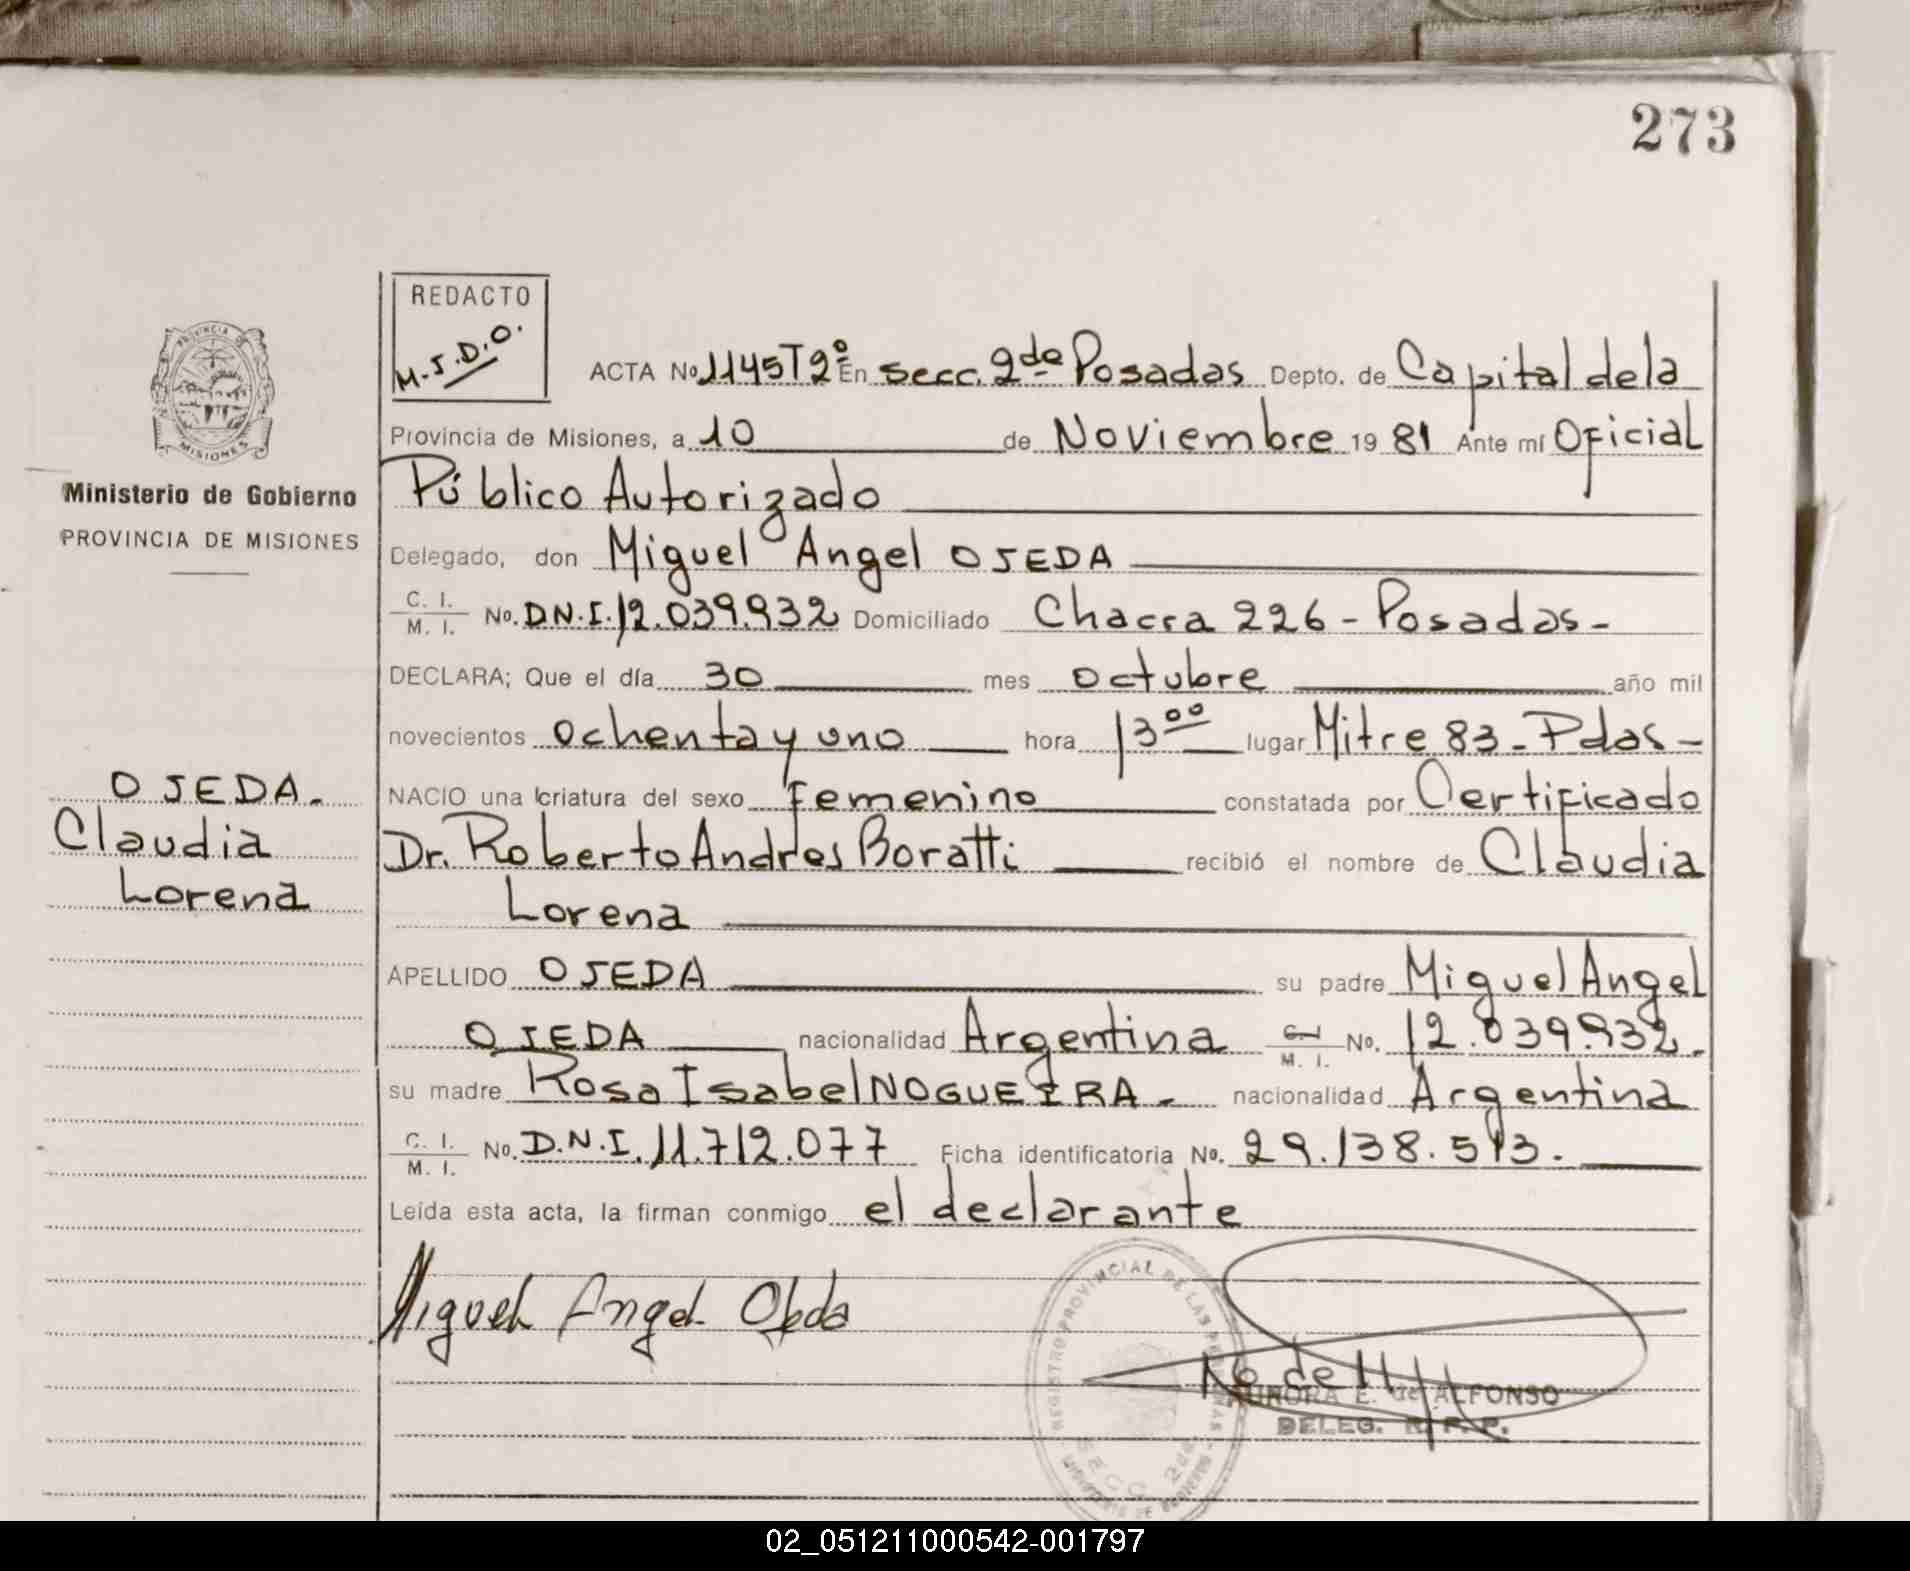 273
REDACTO
M.J.D.O.
PROVINCIA DE
MISIONES
Ministerio de Gobierno
PROVINCIA DE MISIONES
OJEDA.
Claudia
Lorena
ACTA No 1145 T2º En secc. 2da Posadas Depto. de Capital de la
Provincia de Misiones, a 10 de Noviembre 19 81 Ante mí Oficial
Público Autorizado
Delegado, don Miguel Angel OJEDA
C. I. / M. I. No. D.N.I. 12.039.932 Domiciliado Chacra 226 - Posadas -
DECLARA; Que el día 30 mes octubre año mil
novecientos ochenta y uno hora 13 00 lugar Mitre 83 - Pdas -
NACIO una criatura del sexo femenino constatada por Certificado
Dr. Roberto Andres Boratti recibió el nombre de Claudia
Lorena
APELLIDO OJEDA su padre Miguel Angel
OJEDA nacionalidad Argentina C.I. / M. I. No. 12.039.932.
su madre Rosa Isabel NOGUEIRA - nacionalidad Argentina
C. I. / M. I. No. D.N.I. 11.712.077 Ficha identificatoria No. 29.138.513.
Leída esta acta, la firman conmigo el declarante
Miguel Angel Ojeda
REGISTRO PROVINCIAL DE LAS PERSONAS
SECC. 2da
AURORA E. de ALFONSO
DELEG. R. P. P.
02_051211000542-001797